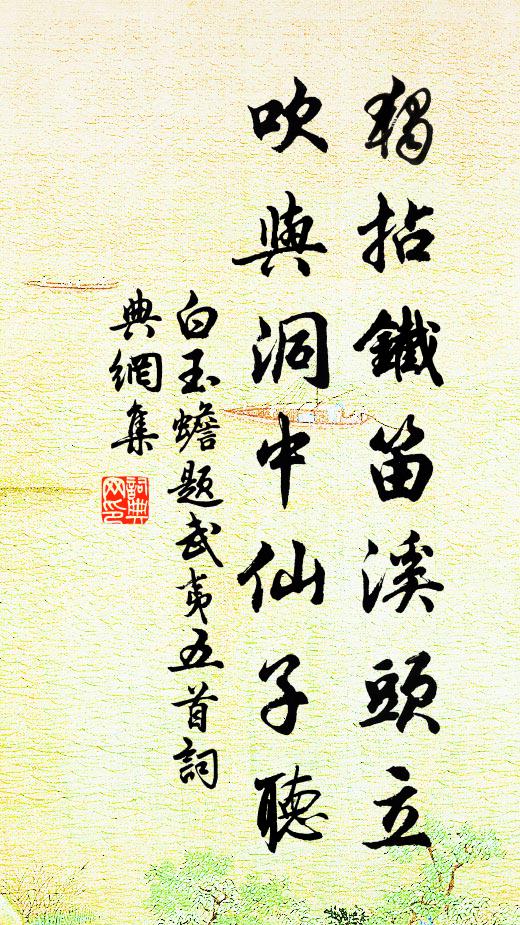 獨拈鐵笛溪頭立
吹與洞中仙子聽
白玉蟾題武夷五首詞
典網集
詞典網印